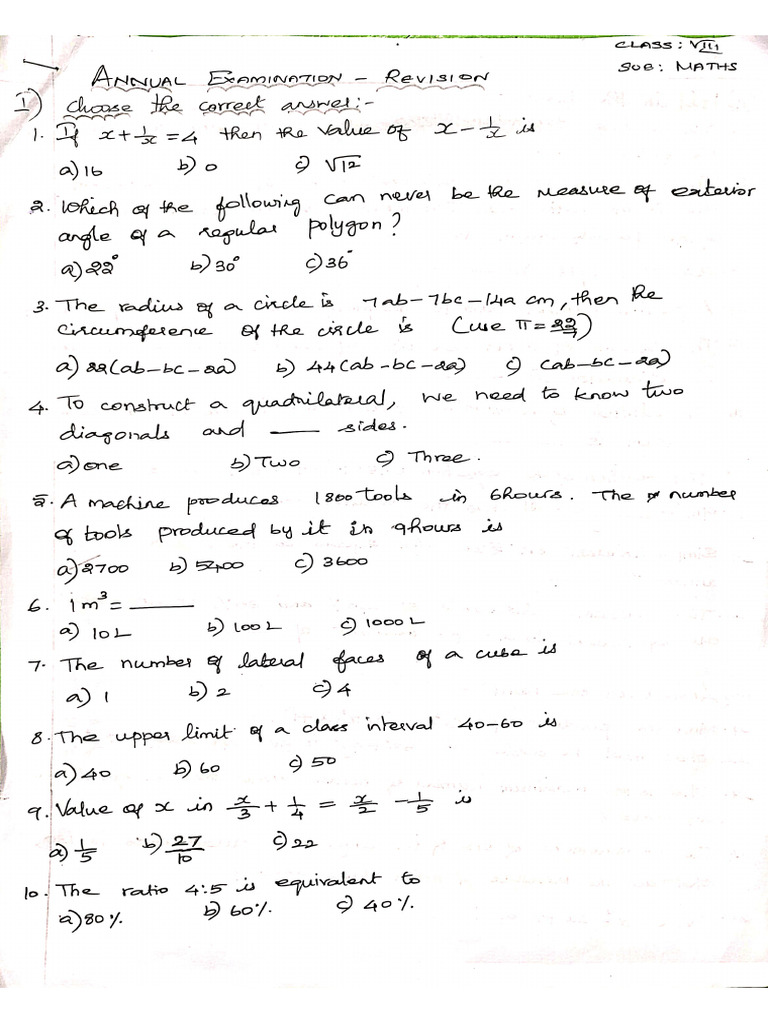 CLASS: VIII
SUB: MATHS
ANNUAL EXAMINATION - REVISION
I) Choose the correct answer:-
1. If x + 1/x = 4 then the value of x - 1/x is
a) 16 b) 0 c) √12
2. Which of the following can never be the measure of exterior
angle of a regular polygon?
a) 22° b) 30° c) 36°
3. The radius of a circle is 7ab-7bc-14a cm, then the
circumference of the circle is (use π = 22/7)
a) 22(ab-bc-2a) b) 44(ab-bc-2a) c) (ab-bc-2a)
4. To construct a quadrilateral, we need to know two
diagonals and ___ sides.
a) one b) Two c) Three.
5. A machine produces 1800 tools in 6hours. The number
of tools produced by it in 9hours is
a) 2700 b) 5400 c) 3600
6. 1m³ = ______
a) 10L b) 100L c) 1000L
7. The number of lateral faces of a cube is
a) 1 b) 2 c) 4
8. The upper limit of a class interval 40-60 is
a) 40 b) 60 c) 50
9. Value of x in x/3 + 1/4 = x/2 - 1/5 is
a) 1/5 b) 27/10 c) 22
10. The ratio 4:5 is equivalent to
a) 80% b) 60% c) 40%.